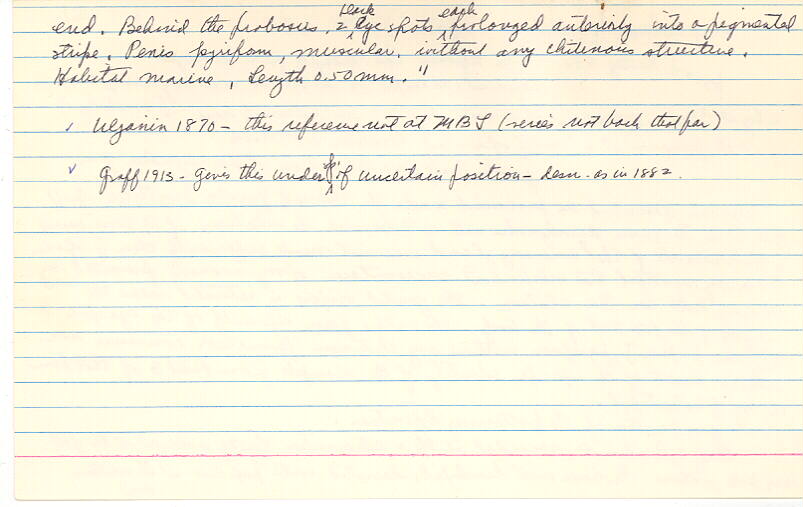 end. Behind the proboscis, 2 black eye spots each prolonged anteriorly into a pigmental
stripe. Penis pyriform, muscular, without any chitinous structure.
Habitat marine, Length 0.50 mm."
✓ Uljanin 1870 – this reference not at MBL (series not back that far)
✓ Graff 1913 - gives this under sp. of uncertain position – desc. as in 1882.